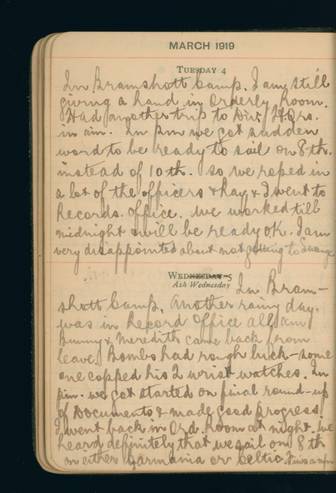 MARCH 1919
TUESDAY 4
In Bramshott Camp. I am still
giving a hand in Orderly Room.
Had another trip to Div. H.Qrs.
in a.m. In p.m. we got sudden
word to be ready to sail on 8th.
instead of 10th. so we roped in
a lot of the officers & Ray & I went to
Records office. we worked till
midnight & will be ready O.K. I am
very disappointed about not getting to
WEDNESDAY 5
Ash Wednesday
In Bram-
shott Camp. Another rainy day.
was in Record Office all a.m.
Bunny & Meredith came back from
leave. Bombs had rough luck - some
one copped his 2 wrist watches. In
p.m. we got started on final round-up
of Documents & made good progress.
I went back in Ord. Room at night. We
heard definitely that we sail on 8th
on either Carmania or Celtic.